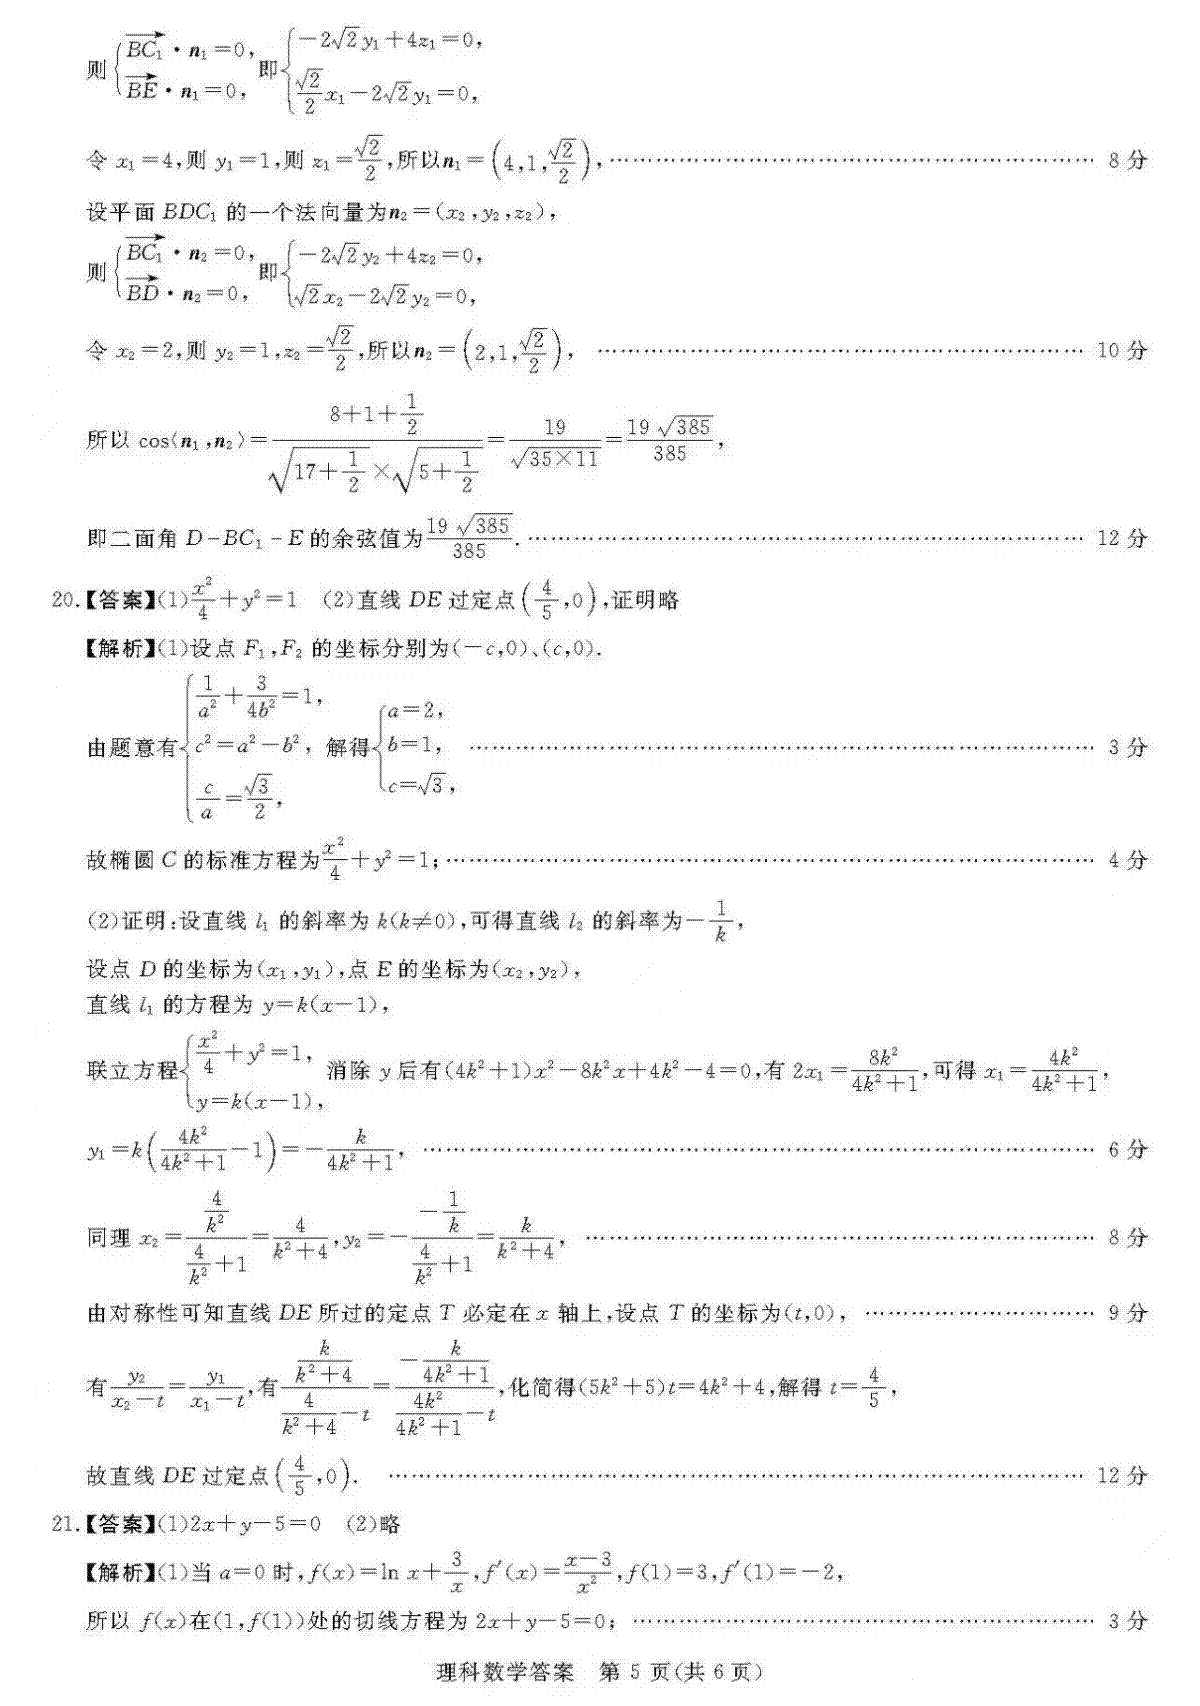 则{BC₁→·n₁=0, BE→·n₁=0, 即{-2√2y₁+4z₁=0, (√2/2)x₁-2√2y₁=0,
令 x₁=4,则 y₁=1,则 z₁=√2/2,所以n₁=(4,1,√2/2),…… 8 分
设平面 BDC₁ 的一个法向量为n₂=(x₂,y₂,z₂),
则{BC₁→·n₂=0, BD→·n₂=0, 即{-2√2y₂+4z₂=0, √2x₂-2√2y₂=0,
令 x₂=2,则 y₂=1,z₂=√2/2,所以n₂=(2,1,√2/2), …… 10 分
所以 cos⟨n₁,n₂⟩=(8+1+1/2)/(√(17+1/2)×√(5+1/2))=19/√(35×11)=19√385/385,
即二面角 D-BC₁-E 的余弦值为19√385/385.…… 12 分
20.【答案】(1)x²/4+y²=1 (2)直线 DE 过定点(4/5,0),证明略
【解析】(1)设点 F₁,F₂ 的坐标分别为(-c,0)、(c,0).
由题意有{1/a²+3/(4b²)=1, c²=a²-b², c/a=√3/2, 解得{a=2, b=1, c=√3, …… 3 分
故椭圆 C 的标准方程为x²/4+y²=1;…… 4 分
(2)证明:设直线 l₁ 的斜率为 k(k≠0),可得直线 l₂ 的斜率为-1/k,
设点 D 的坐标为(x₁,y₁),点 E 的坐标为(x₂,y₂),
直线 l₁ 的方程为 y=k(x-1),
联立方程{x²/4+y²=1, y=k(x-1), 消除 y 后有(4k²+1)x²-8k²x+4k²-4=0,有 2x₁=8k²/(4k²+1),可得 x₁=4k²/(4k²+1),
y₁=k(4k²/(4k²+1)-1)=-k/(4k²+1), …… 6 分
同理 x₂=(4/k²)/(4/k²+1)=4/(k²+4),y₂=-(-1/k)/(4/k²+1)=k/(k²+4), …… 8 分
由对称性可知直线 DE 所过的定点 T 必定在 x 轴上,设点 T 的坐标为(t,0), …… 9 分
有 y₂/(x₂-t)=y₁/(x₁-t),有 (k/(k²+4))/(4/(k²+4)-t)=(-k/(4k²+1))/(4k²/(4k²+1)-t),化简得(5k²+5)t=4k²+4,解得 t=4/5,
故直线 DE 过定点(4/5,0). …… 12 分
21.【答案】(1)2x+y-5=0 (2)略
【解析】(1)当 a=0 时,f(x)=ln x+3/x,f′(x)=(x-3)/x²,f(1)=3,f′(1)=-2,
所以 f(x)在(1,f(1))处的切线方程为 2x+y-5=0; …… 3 分
理科数学答案 第 5 页(共 6 页)